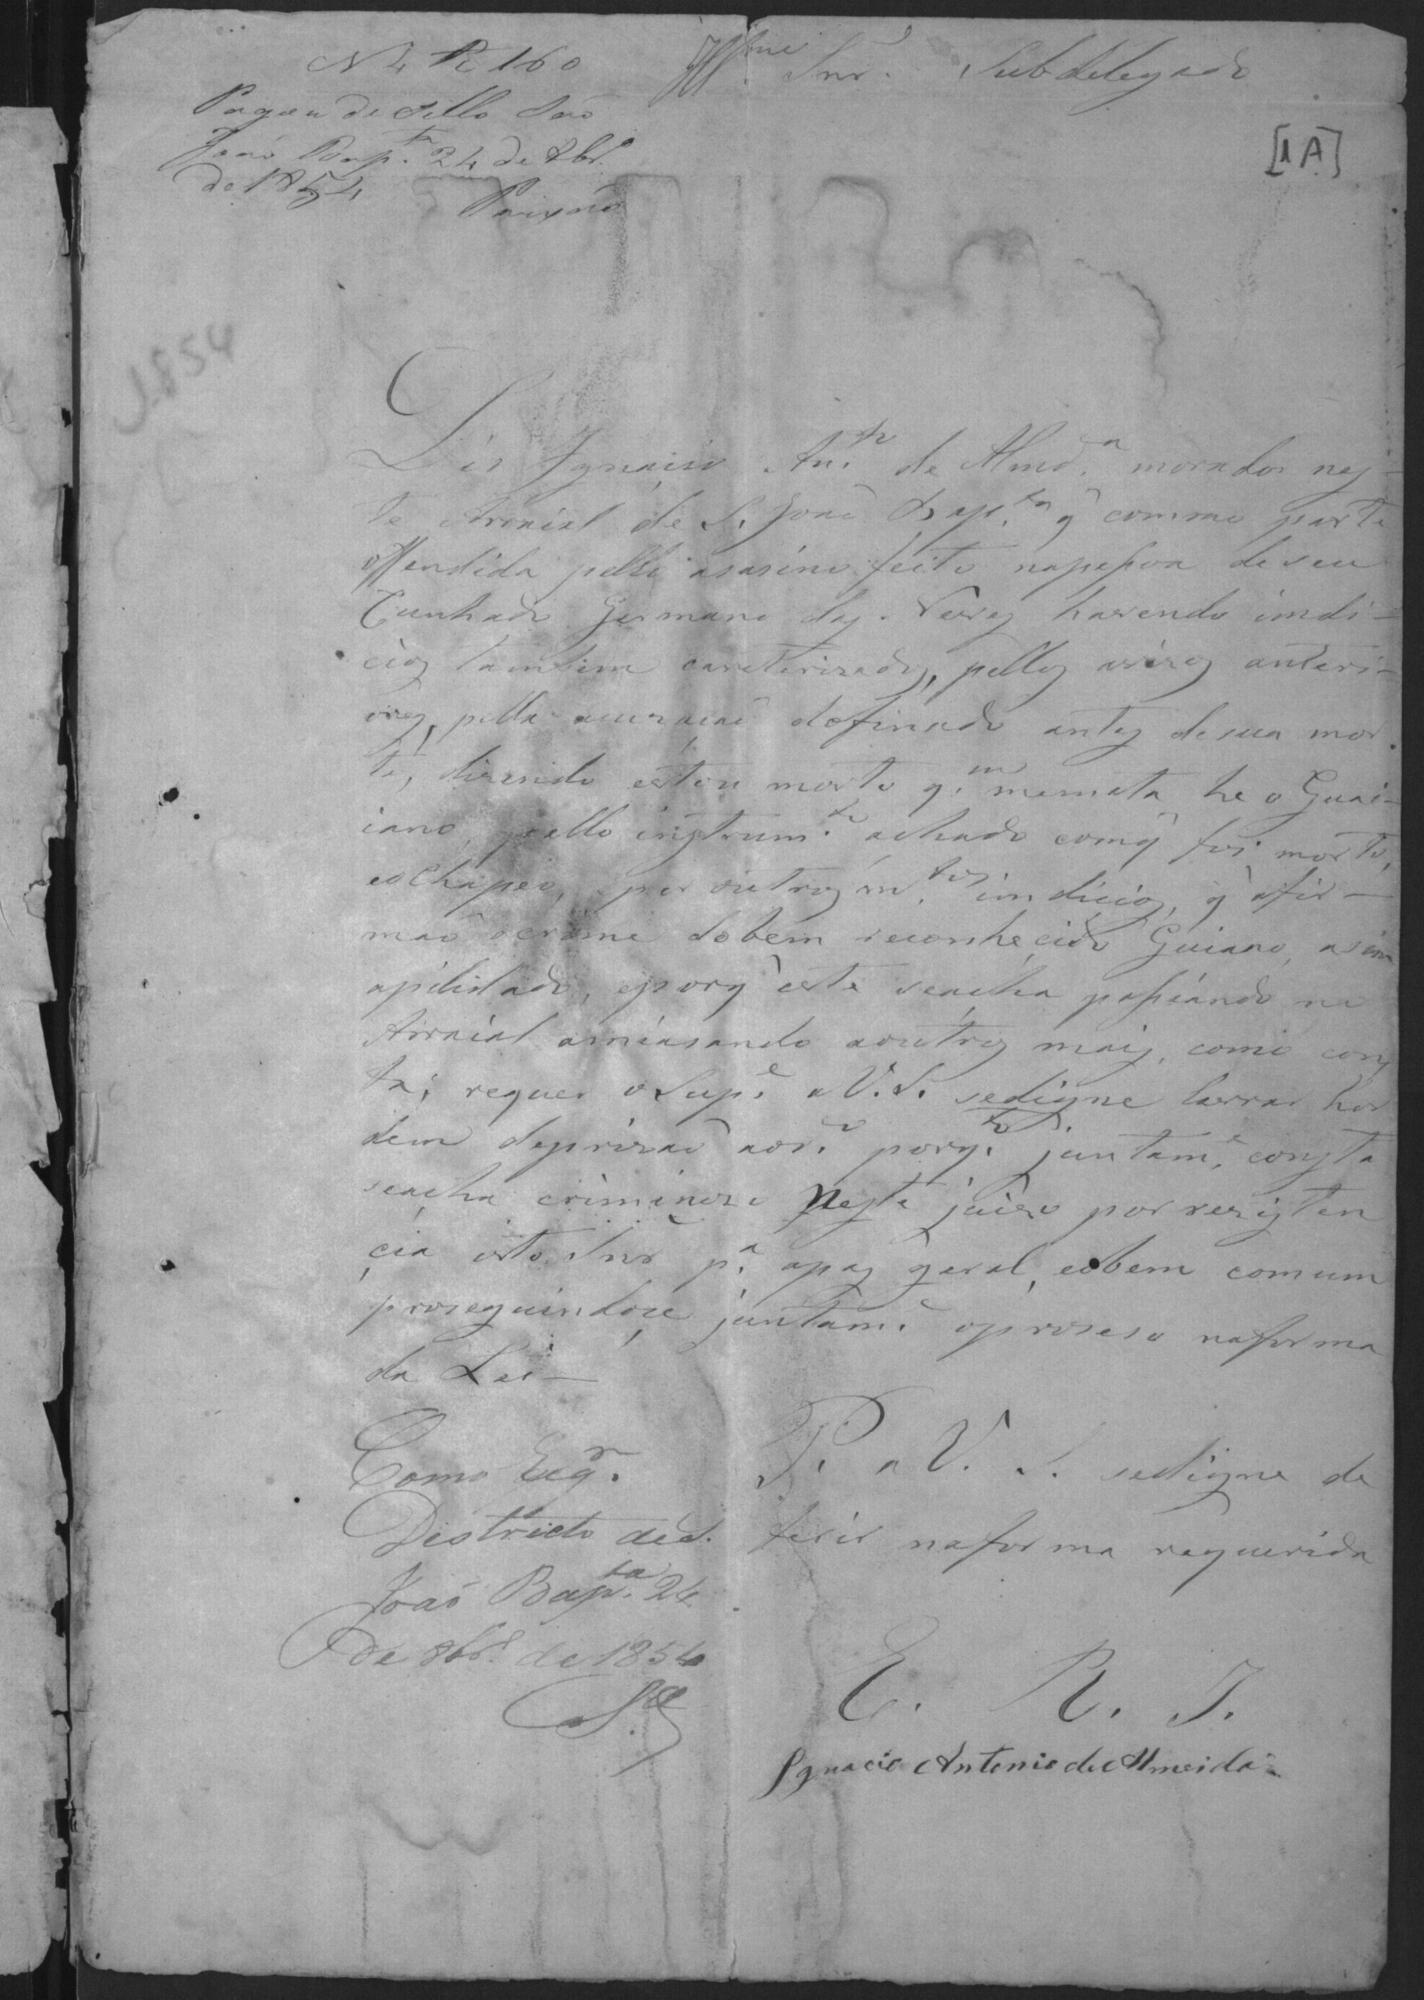 N 4 R 160
Pagou de sello São
João Bap.ta 24 de 8br.o
de 1854
Paixão
Ill.mo Snr. Subdelegado
[1A]
1854
Dis Ignaisio An.to de Almd.a morador nes-
te Arraial de S. João Bap.ta q̃ commo parte
offendida pello asasino feito napessoa de seu
Cunhado Germano das Neves havendo indi-
cios tambem careterizados, pellos avizos anteri-
ores, pella acuzacaõ dofinado antes de sua mor
te, dizendo estou morto q.m memata he o Guai-
iano, pello instrum.to achado comq̃ foi morto,
eochapeo, por outros m.tos indicios, q̃ afir-
maõ ocrime dobem reconhecido Guiano, asim
apilidado, eporq̃ este seacha passiando no
Arraial amiasando aoutros mais, como cons
ta; requer o Sup.e a V.S. sedigne lavrar hor
dem deprizaõ aor.o porq.to juntam.e consta
seacha criminozo Neste juizo por rezisten
cia isto Snr p.a apas geral, eobem comum
proseguindose juntam.e oproseso naforma
da Lei—
Como Reqr.
Districto de S.
João Bap.ta 24
de 8br.o de 1854
P. a V. S. sedigne de
ferir naforma requerida
E. R. J.
Ignacio Antonio de Almeida